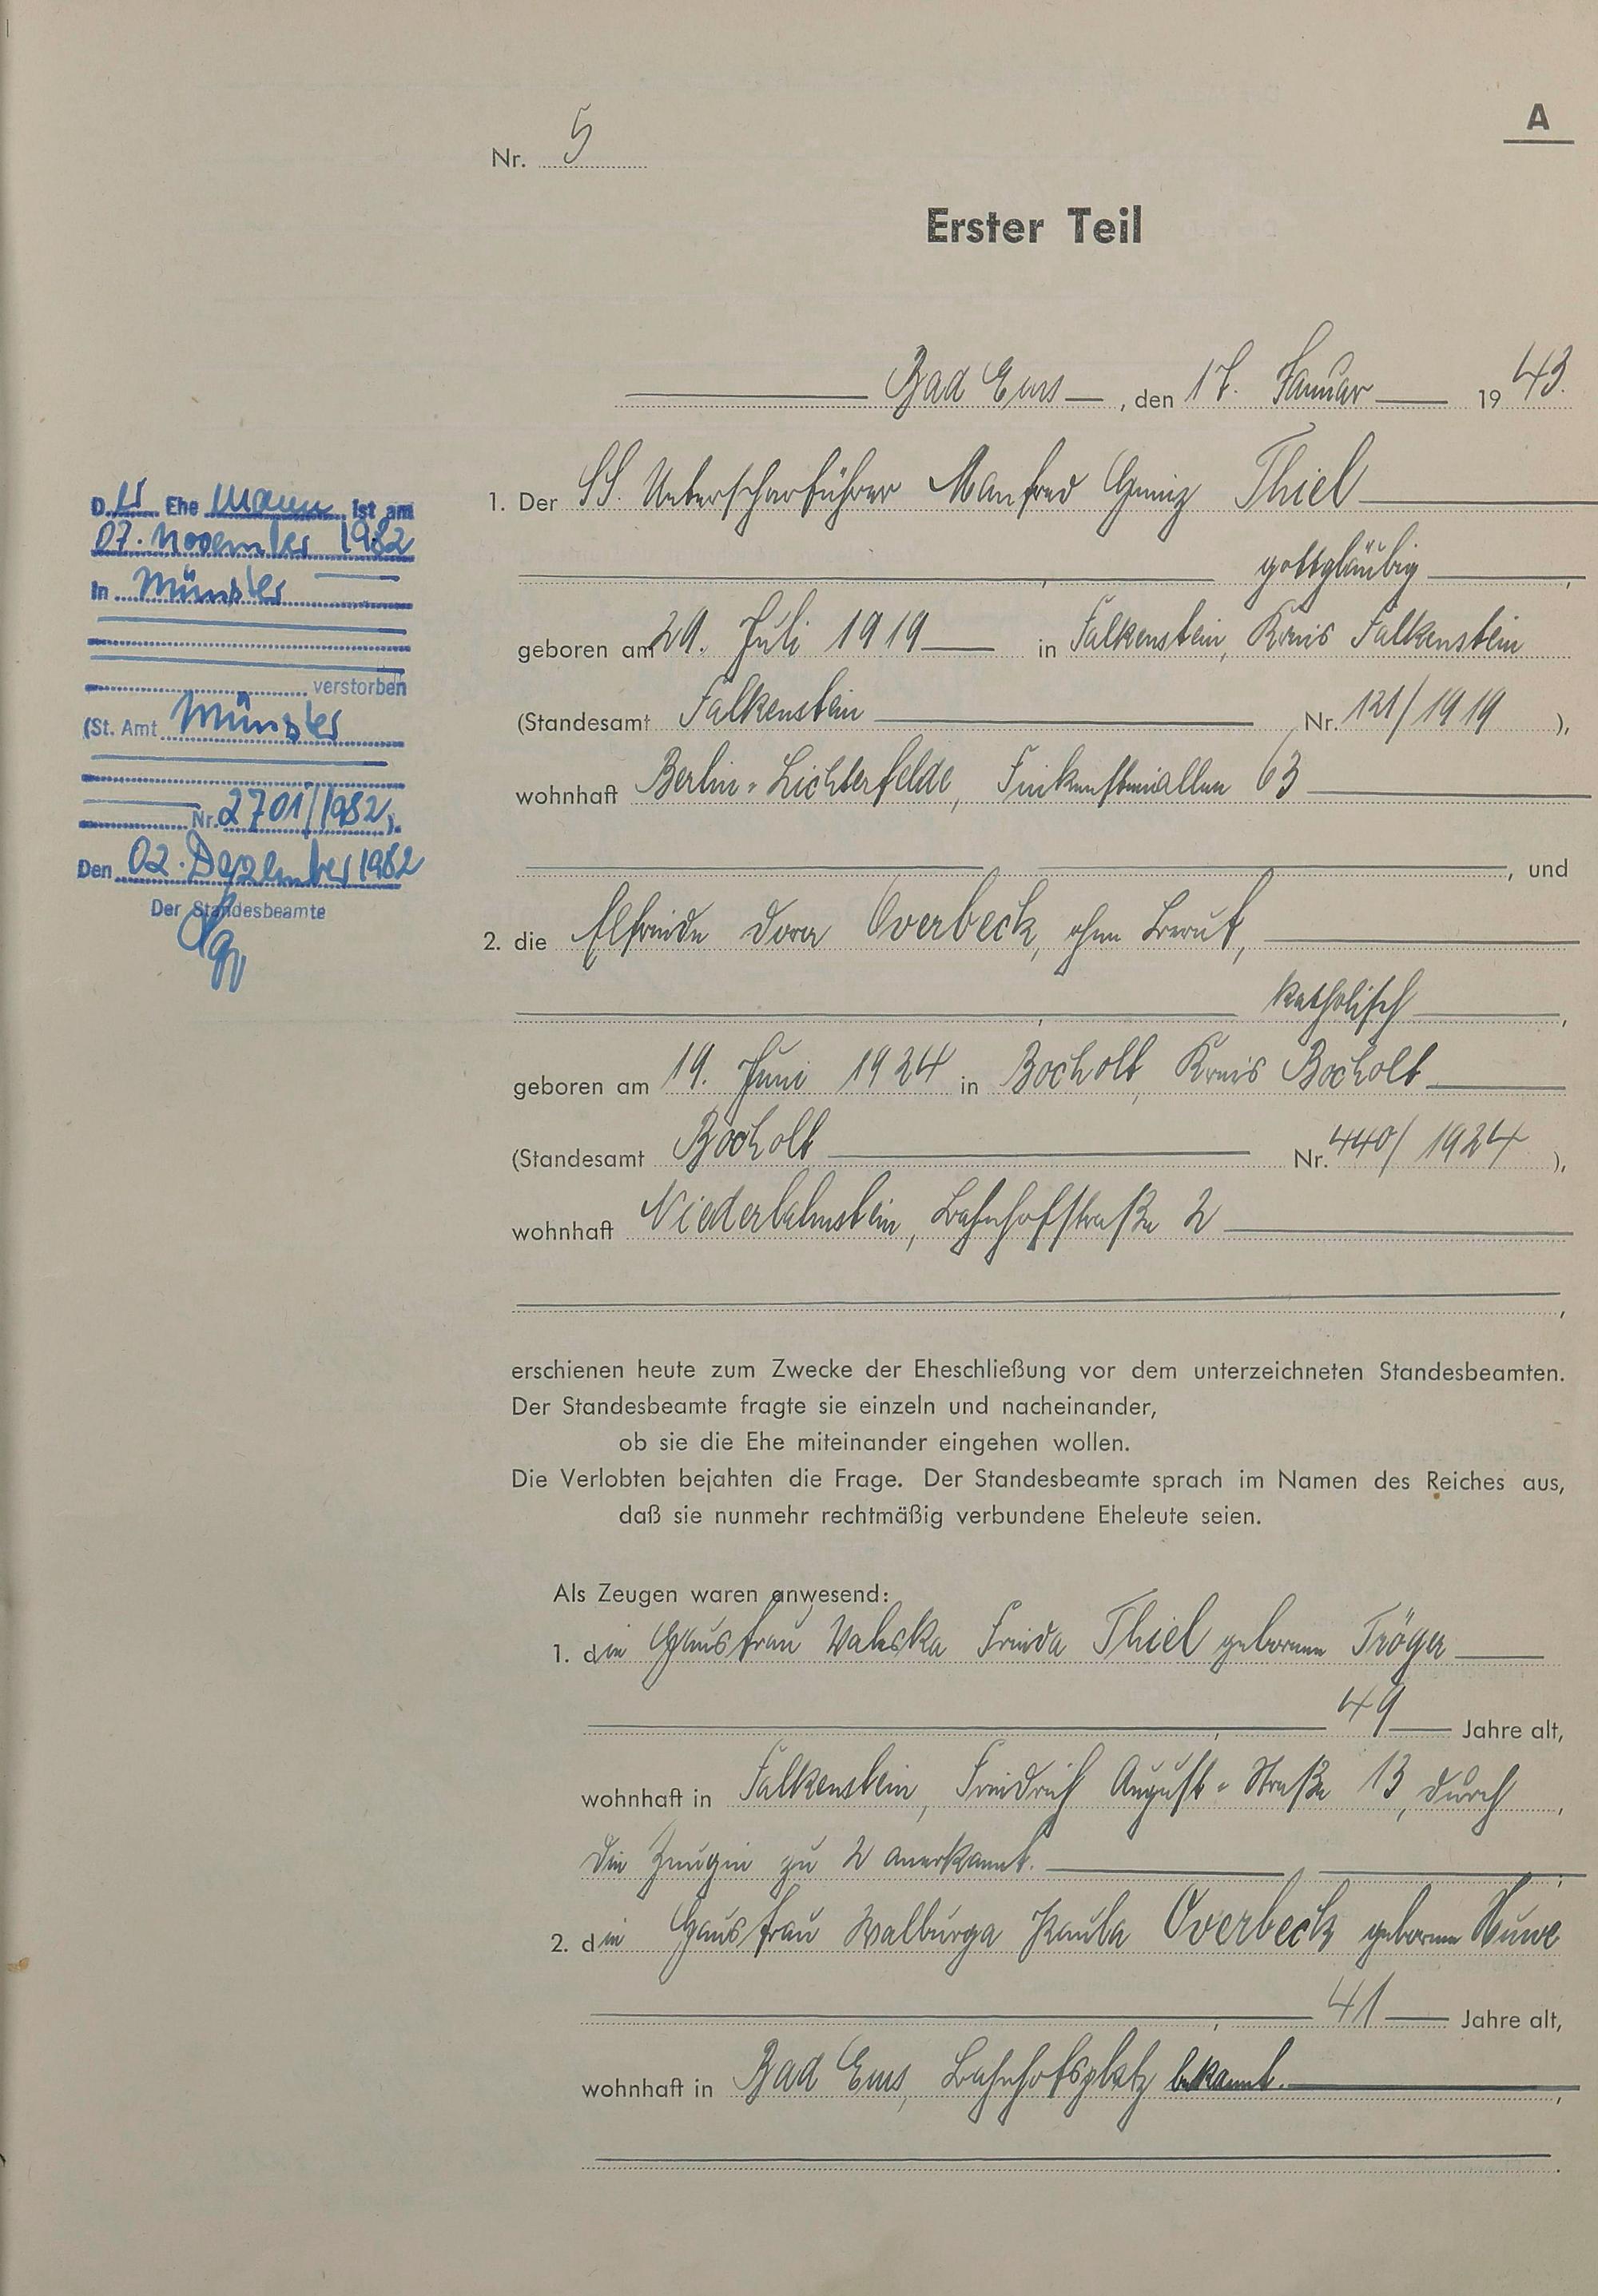 A
Nr. 5
Erster Teil
Bad Ems, den 17. Januar 1943.
1. Der SS. Unterscharführer Manfred Heinz Thiel
gottgläubig,
geboren am 29. Juli 1919 in Falkenstein, Kreis Falkenstein
(Standesamt Falkenstein Nr. 121/1919),
wohnhaft Berlin-Lichterfelde, Finkensteinallee 63
, und
2. die Elfriede Dora Overbeck, ohne Beruf,
katholisch,
geboren am 19. Juni 1924 in Bocholt, Kreis Bocholt
(Standesamt Bocholt Nr. 440/1924),
wohnhaft Niederlahnstein, Bahnhofstraße 2
,
erschienen heute zum Zwecke der Eheschließung vor dem unterzeichneten Standesbeamten.
Der Standesbeamte fragte sie einzeln und nacheinander,
ob sie die Ehe miteinander eingehen wollen.
Die Verlobten bejahten die Frage. Der Standesbeamte sprach im Namen des Reiches aus,
daß sie nunmehr rechtmäßig verbundene Eheleute seien.
Als Zeugen waren anwesend:
1. die Hausfrau Valeska Frieda Thiel geborene Tröger
49 Jahre alt,
wohnhaft in Falkenstein, Friedrich August-Straße 13, durch
die Zeugin zu 2 anerkannt.
2. die Hausfrau Walburga Paula Overbeck geborene Huwe
41 Jahre alt,
wohnhaft in Bad Ems, Bahnhofsplatz bekannt.
Der Ehemann ist am
07. November 1982
in Münster
verstorben
(St. Amt Münster
Nr. 2701/1982).
Den 02. Dezember 1982
Der Standesbeamte